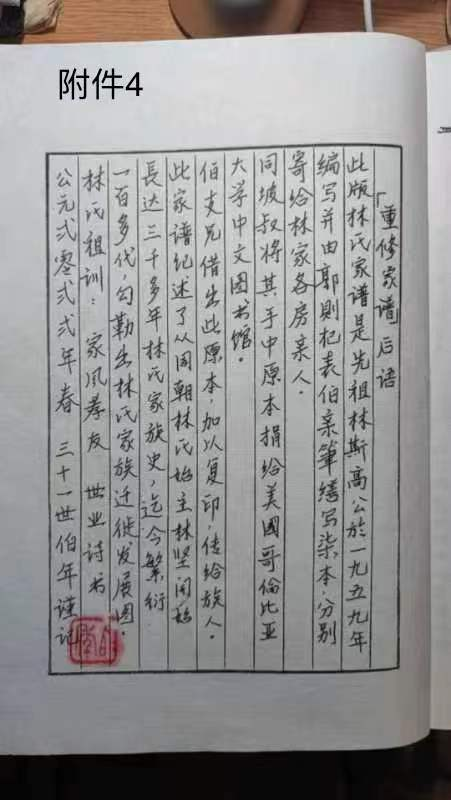 附件4
「重修家谱」后语
此版林氏家谱是先祖林斯高公於一九五九年
编写并由郭則杞表伯亲筆缮写柒本,分别
寄给林家各房亲人。
同坡叔将其手中原本捐给美國哥倫比亚
大学中文图书馆。
伯支兄借出此原本,加以复印,传给族人。
此家谱纪述了从周朝林氏始主林坚開始
長达三千多年林氏家族史,迄今繁衍
一百多代,勾勒出林氏家族迁徙发展图。
林氏祖训: 家风孝友 世业诗书
公元弍零弍弍年春 三十一世伯年谨记